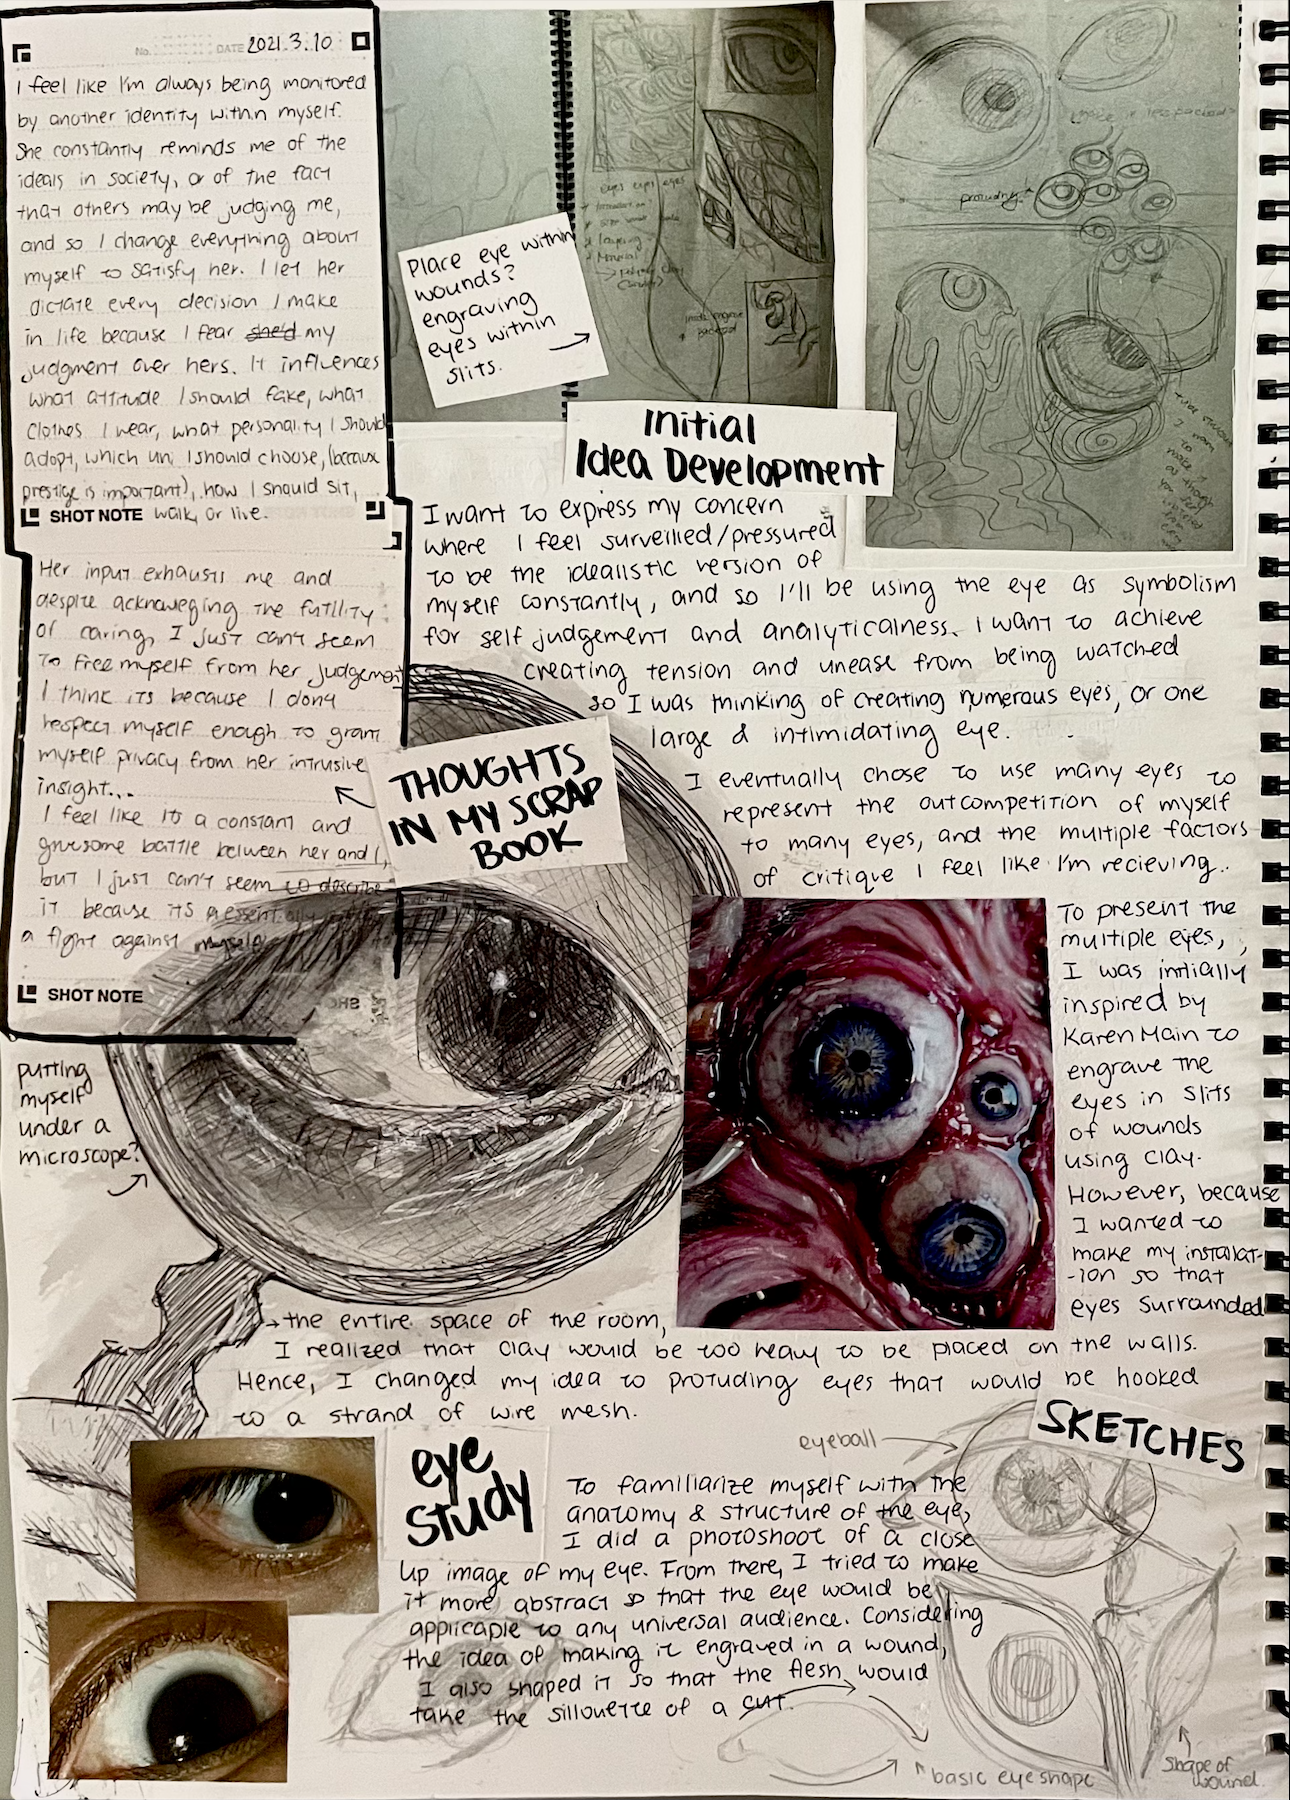 No. DATE 2021.3.10
I feel like I'm always being monitored
by another identity within myself.
She constantly reminds me of the
ideals in society, or of the fact
that others may be judging me,
and so I change everything about
myself to satisfy her. I let her
dictate every decision I make
in life because I fear she'd my
judgment over hers. It influences
what attitude I should fake, what
clothes I wear, what personality I should
adopt, which uni I should choose, (because
prestige is important), how I should sit,
SHOT NOTE walk, or live.
Her input exhausts me and
despite acknowleging the futility
of caring, I just can't seem
to free myself from her judgement
I think its because I dont
respect myself enough to grant
myself privacy from her intrusive
insight...
I feel like its a constant and
gruesome battle between her and I,
but I just can't seem to describe
it because its essentially
a fight against myself
SHOT NOTE
THOUGHTS
IN MY SCRAP
BOOK
putting
myself
under a
microscope?
Place eye within
wounds?
engraving
eyes within
slits.
eyes eyes eyes
protruding
Initial
Idea Development
I want to express my concern
where I feel surveilled/pressured
to be the idealistic version of
myself constantly, and so I'll be using the eye as symbolism
for self judgement and analyticalness. I want to achieve
creating tension and unease from being watched
so I was thinking of creating numerous eyes, or one
large & intimidating eye.
I eventually chose to use many eyes to
represent the outcompetition of myself
to many eyes, and the multiple factors
of critique I feel like I'm recieving..
To present the
multiple eyes,
I was initially
inspired by
Karen Main to
engrave the
eyes in slits
of wounds
using clay.
However, because
I wanted to
make my installat-
-ion so that
eyes surrounded
the entire space of the room,
I realized that clay would be too heavy to be placed on the walls.
Hence, I changed my idea to protuding eyes that would be hooked
to a strand of wire mesh.
eye
study
To familiarize myself with the
anatomy & structure of the eye,
I did a photoshoot of a close
up image of my eye. From there, I tried to make
it more abstract so that the eye would be
applicable to any universal audience. Considering
the idea of making it engraved in a wound,
I also shaped it so that the flesh would
take the sillouette of a cut.
SKETCHES
eyeball
basic eye shape
shape of
wound.